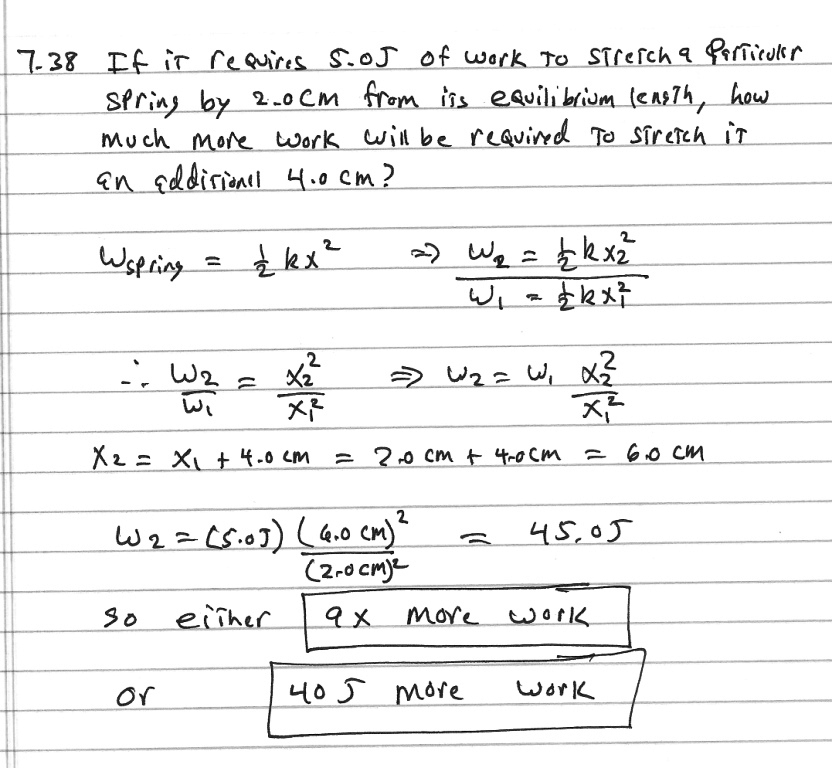 7.38 If it requires 5.0J of work to stretch a particular
spring by 2.0cm from its equilibrium length, how
much more work will be required to stretch it
an additional 4.0 cm?
Wspring = ½ kx² ⇒ W₂ = ½ k x₂²
W₁ = ½ k x₁²
∴ W₂/W₁ = x₂²/x₁² ⇒ W₂ = W₁ x₂²/x₁²
X₂ = X₁ + 4.0 cm = 2.0 cm + 4.0 cm = 6.0 cm
W₂ = (5.0J) (6.0 cm)²/(2.0 cm)² = 45.0J
so either 9x more work
or 40 J more work